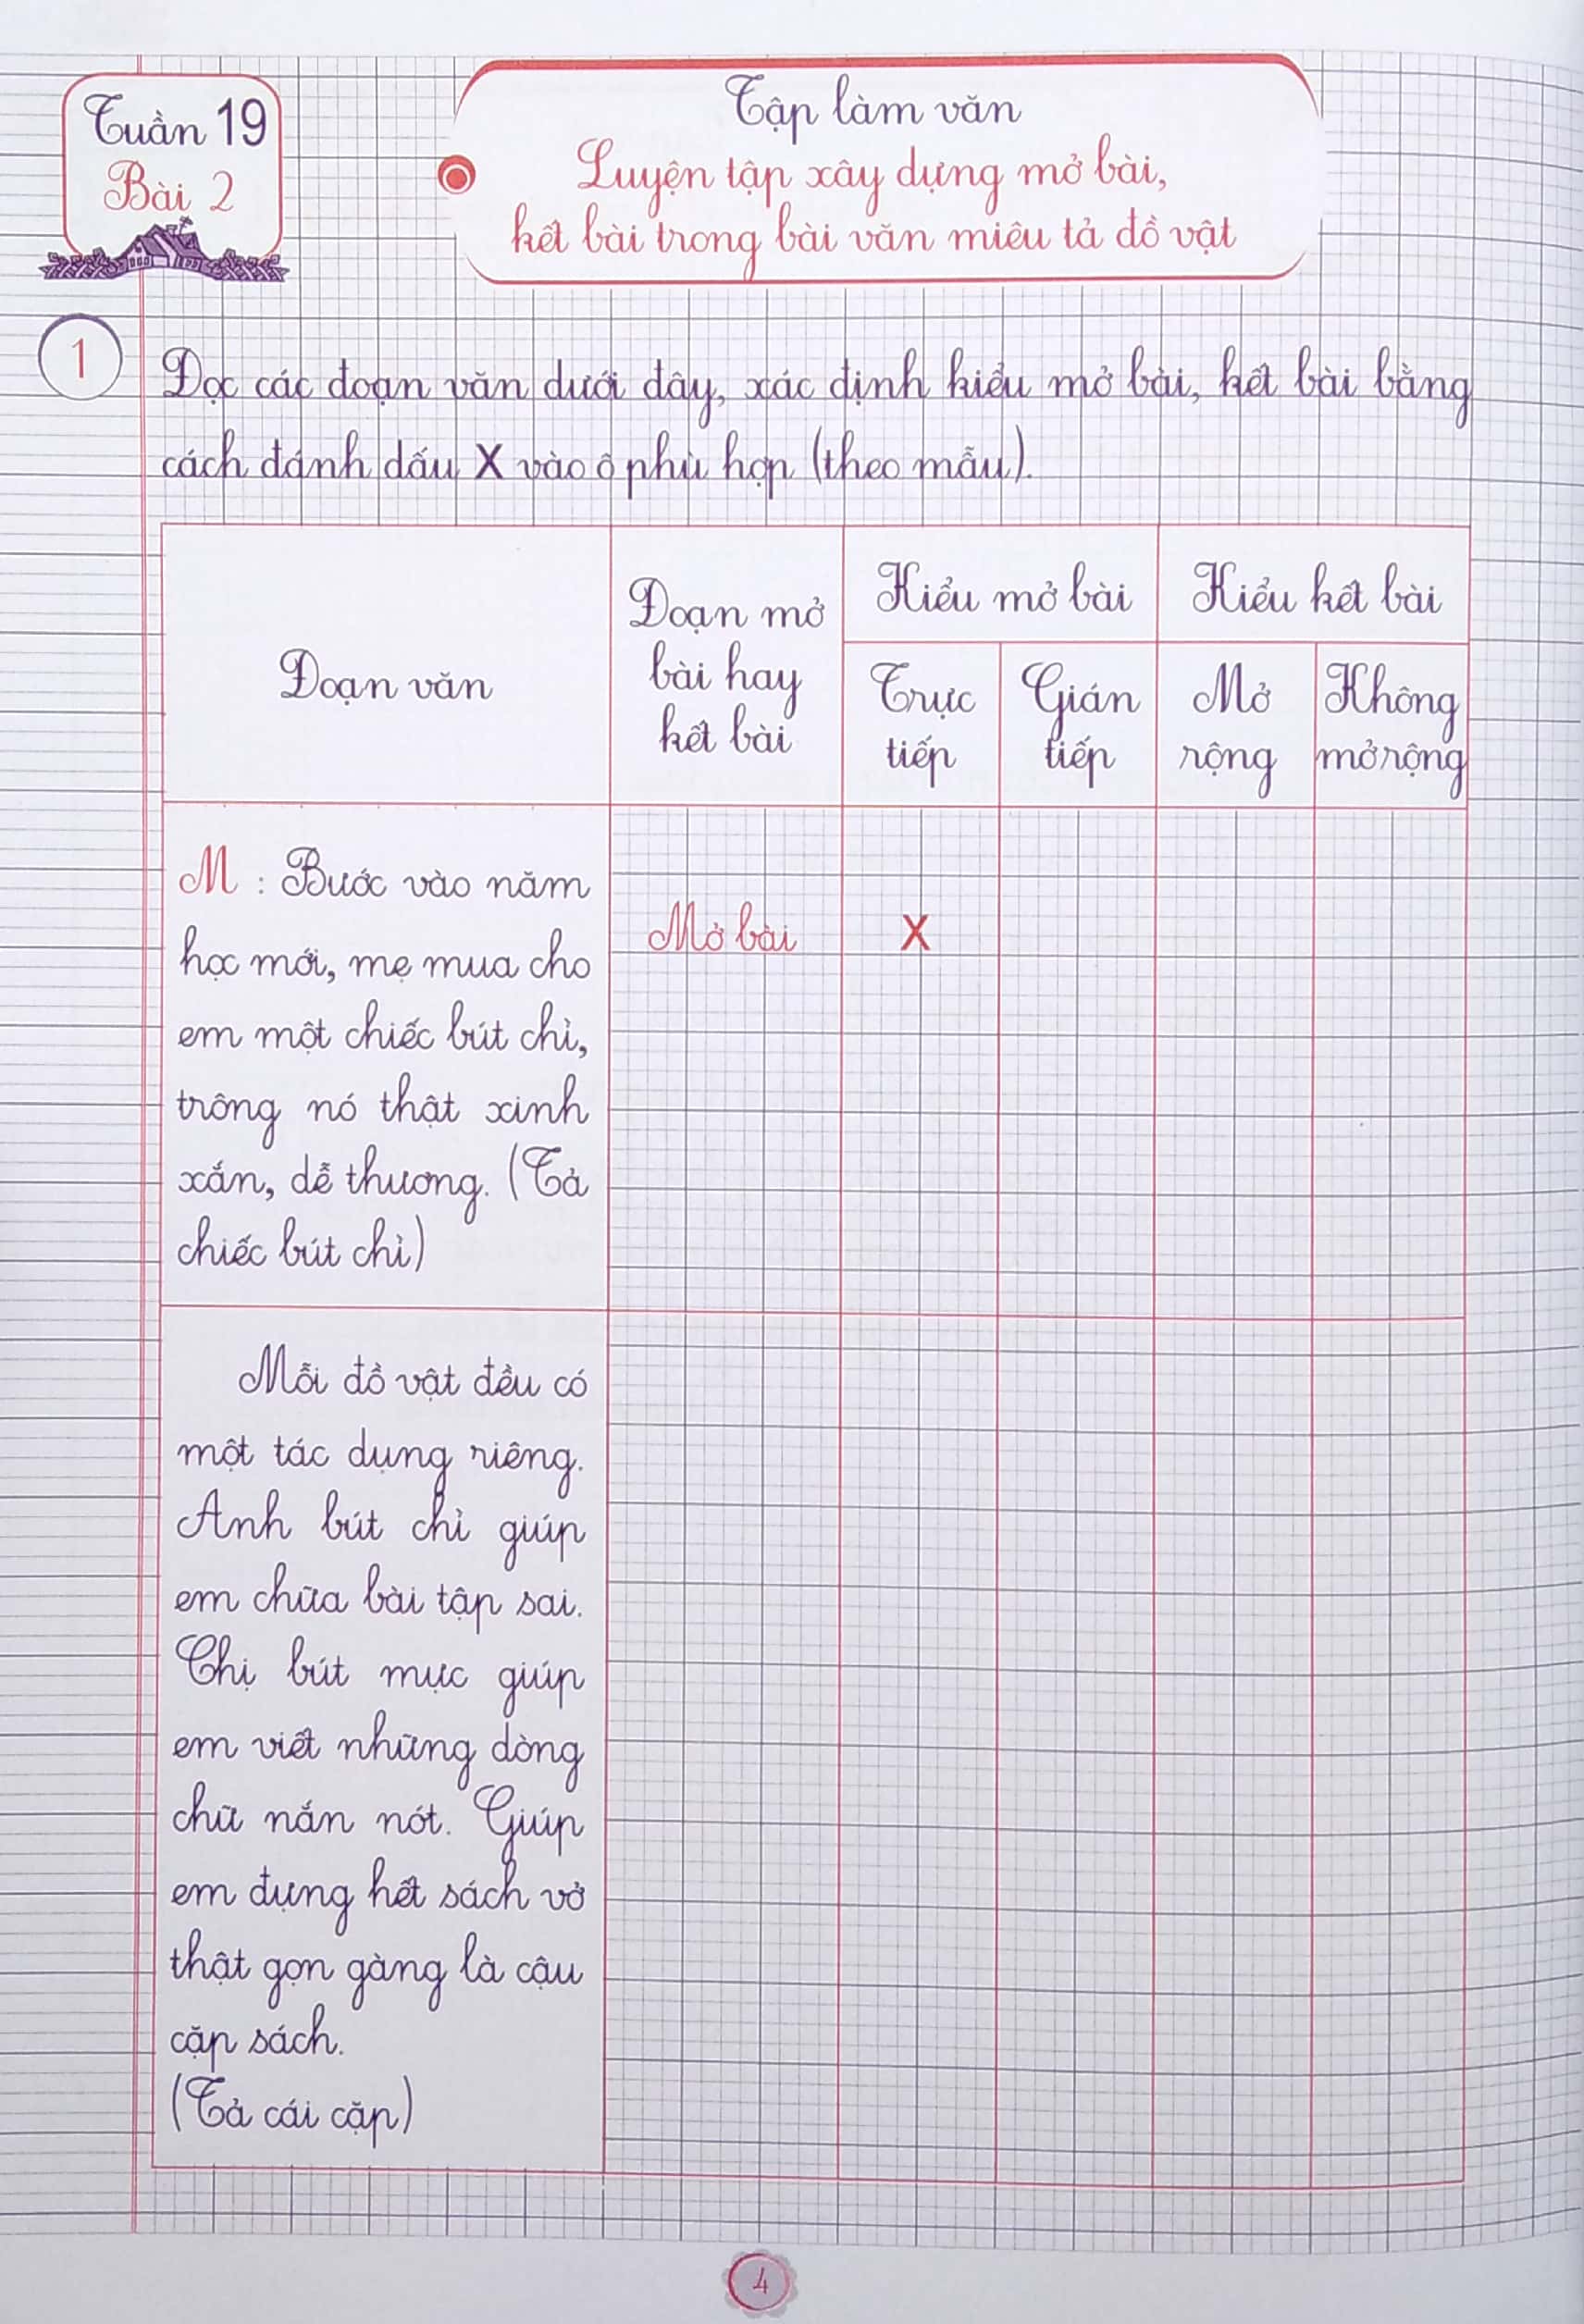 Tuần 19
Bài 2
Tập làm văn
Luyện tập xây dựng mở bài,
kết bài trong bài văn miêu tả đồ vật
1
Đọc các đoạn văn dưới đây, xác định kiểu mở bài, kết bài bằng
cách đánh dấu X vào ô phù hợp (theo mẫu).
Đoạn văn
Đoạn mở
bài hay
kết bài
Kiểu mở bài
Kiểu kết bài
Trực
tiếp
Gián
tiếp
Mở
rộng
Không
mở rộng
M : Bước vào năm
học mới, mẹ mua cho
em một chiếc bút chì,
trông nó thật xinh
xắn, dễ thương. (Tả
chiếc bút chì)
Mở bài
X
Mỗi đồ vật đều có
một tác dụng riêng.
Anh bút chì giúp
em chữa bài tập sai.
Chị bút mực giúp
em viết những dòng
chữ nắn nót. Giúp
em đựng hết sách vở
thật gọn gàng là cậu
cặp sách.
(Tả cái cặp)
4